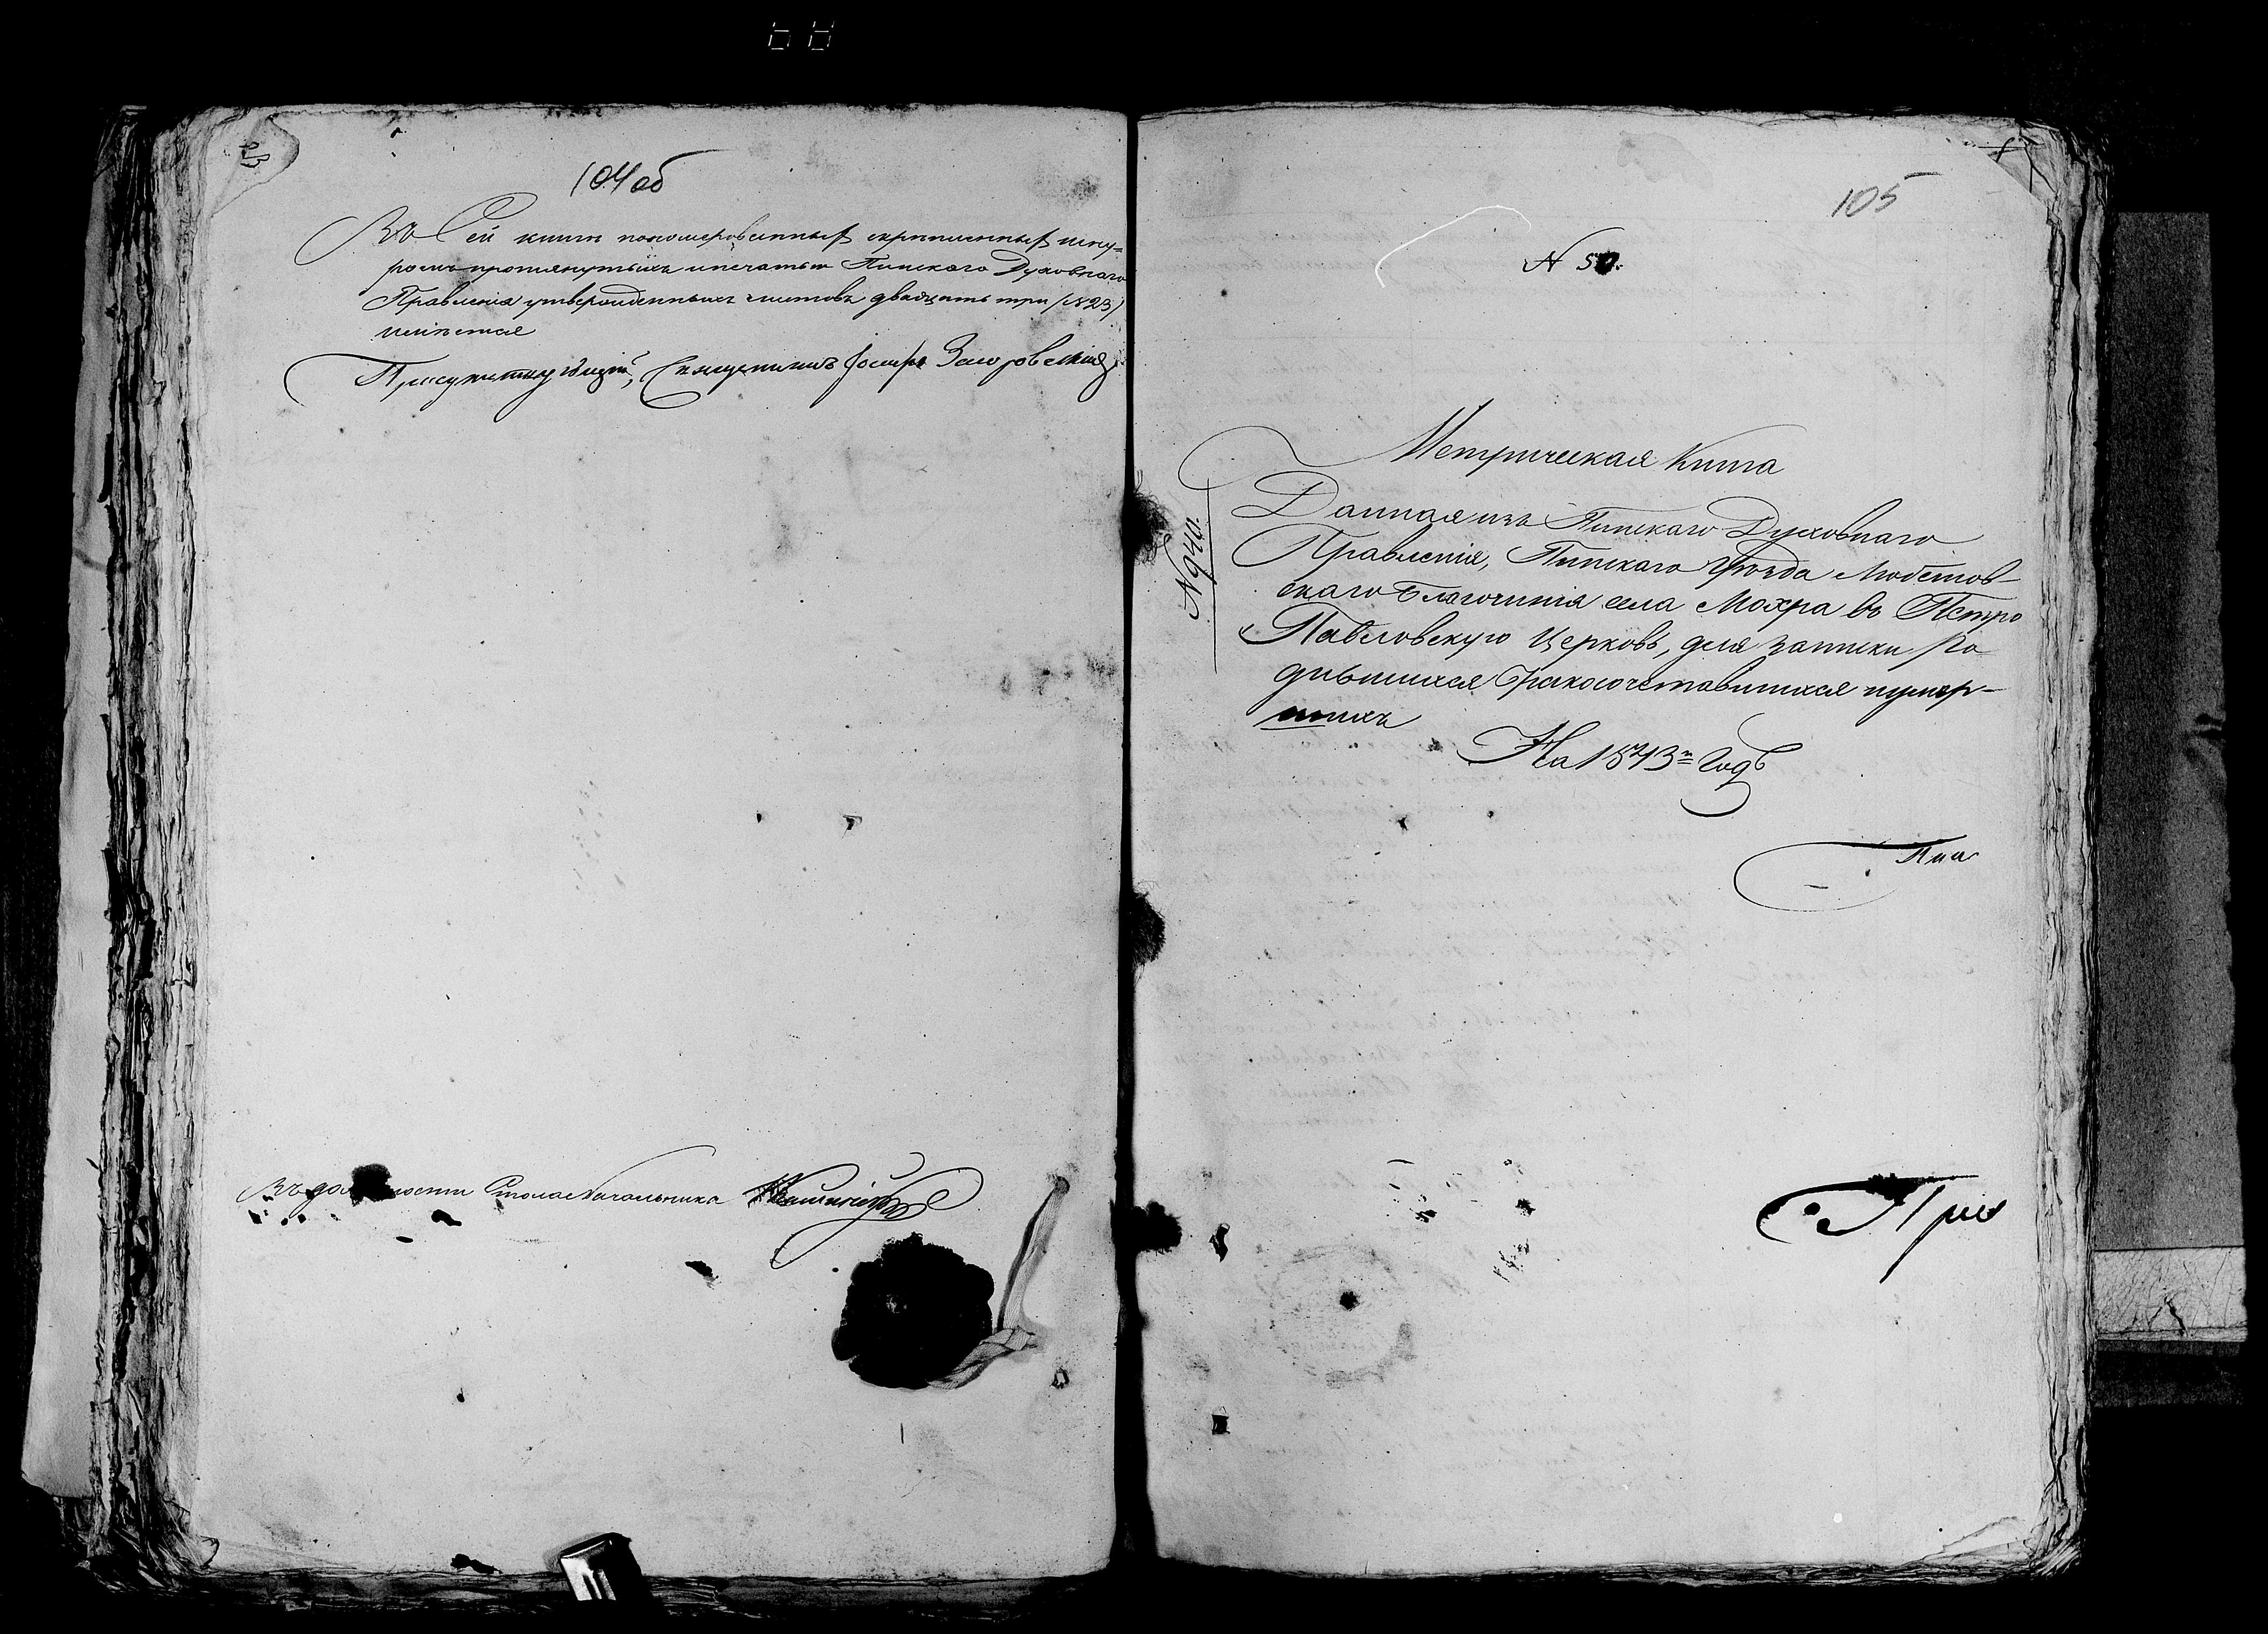 23
104 об
Въ сей книгѣ пономерованныхъ скрѣпленныхъ шну-
ромъ протянутыхъ и печатью Пинского Духовнаго
Правленія утвержденныхъ листовъ двадцать три (№ 23)
имѣется
Присутствующій, Священникъ Іосифъ
Въ должности Столоначальника
105
N 50.
N 940.
Метрическая Книга
Данная изъ Пинскаго Духовнаго
Правленія, Пинскаго Уѣзда Любешов-
скаго Благочинія села Мохра въ Петро
Павловскую Церковь, для записки Ро-
дившихся Бракосочетавшихся и умер-
шихъ
На 1843й годъ
Пин
При